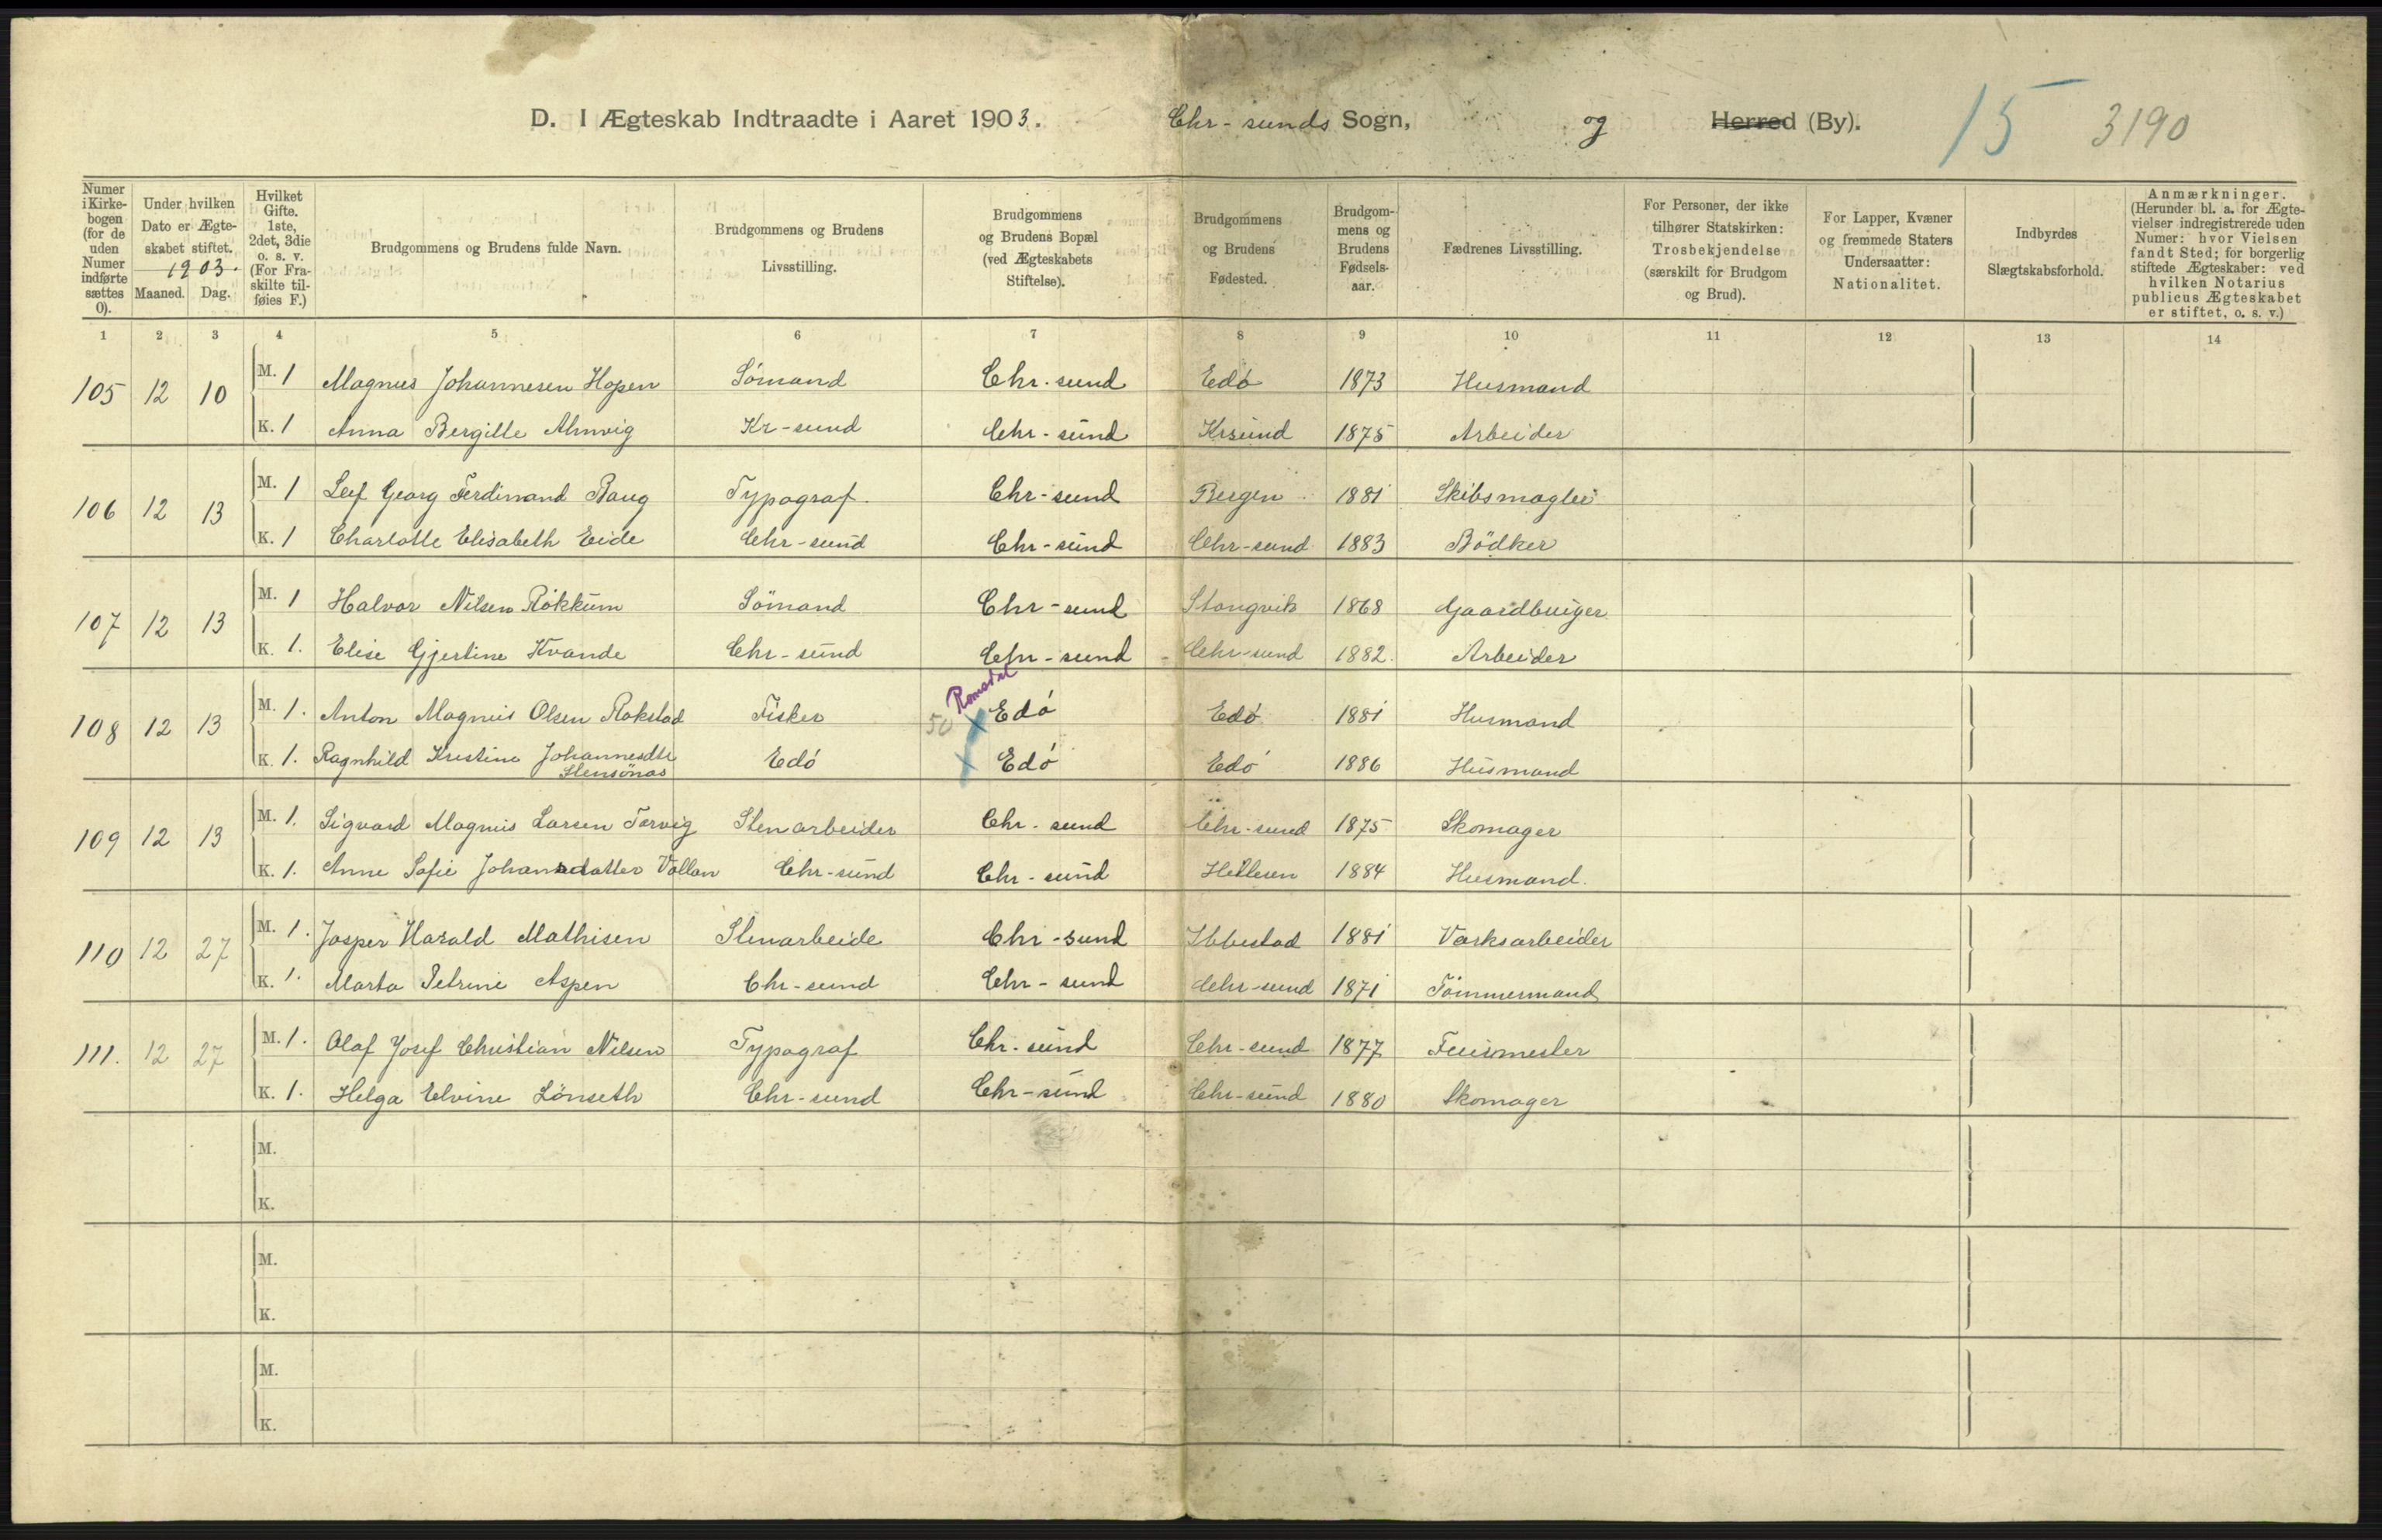 D. I Ægteskab Indtraadte i Aaret 1903. Chr-sunds Sogn, og Herred (By). 15 3190
Numer i Kirkebogen (for de uden Numer indførte sættes 0).
Under hvilken Dato er Ægteskabet stiftet. 1903. Maaned. Dag.
Hvilket Gifte. 1ste, 2det, 3die o. s. v. (For Fraskilte tilføies F.)
Brudgommens og Brudens fulde Navn.
Brudgommens og Brudens Livsstilling.
Brudgommens og Brudens Bopæl (ved Ægteskabets Stiftelse).
Brudgommens og Brudens Fødested.
Brudgommens og Brudens Fødselsaar.
Fædrenes Livsstilling.
For Personer, der ikke tilhører Statskirken: Trosbekjendelse (særskilt for Brudgom og Brud).
For Lapper, Kvæner og fremmede Staters Undersaatter: Nationalitet.
Indbyrdes Slægtskabsforhold.
Anmærkninger. (Herunder bl. a. for Ægtevielser indregistrerede uden Numer: hvor Vielsen fandt Sted; for borgerlig stiftede Ægteskaber: ved hvilken Notarius publicus Ægteskabet er stiftet, o. s. v.)
1 2 3 4 5 6 7 8 9 10 11 12 13 14
105 12 10 M. 1 Magnus Johannesen Hopen Sömand Chr. sund Edö 1873 Husmand
K. 1 Anna Bergitte Almvig Kr-sund Chr-sund Krsund 1875 Arbeider
106 12 13 M. 1 Leif Georg Ferdinand Baug Typograf. Chr-sund Bergen 1881 Skibsmægler
K. 1 Charlotte Elisabeth Eide Chr-sund Chr-sund Chr-sund 1883 Bödker
107 12 13 M. 1 Halvor Nilsen Rökkum Sömand Chr-sund Stangvik 1868 Gaardbruger
K. 1. Elise Gjertine Kvande Chr-sund Chr-sund Chr-sund 1882. Arbeider
Romsdal
108 12 13 M. 1. Anton Magnus Olsen Rokstad Fisker 50 x Edö Edö 1881 Husmand
K. 1. Ragnhild Kristine Johannesdtr Edö x Edö Edö 1886 Husmand
Stensönæs
109 12 13 M. 1. Sigvard Magnus Larsen Torvig Stenarbeider Chr. sund Chr-sund 1875 Skomager
K. 1. Anne Sofie Johansdatter Vollan Chr-sund Chr-sund Hellesen 1884 Husmand.
110 12 27 M. 1. Jasper Harald Mathisen Stenarbeide Chr-sund Ibbestad 1881 Værksarbeider
K. 1. Marta Petrine Aspen Chr-sund Chr-sund Chr-sund 1871 Tömmermand
111. 12 27 M. 1. Olaf Josef Christian Nilsen Typograf Chr-sund Chr-sund 1877 Fuirmester
K. 1. Helga Elvine Lönseth Chr-sund Chr-sund Chr-sund 1880 Skomager
M.
K.
M.
K.
M.
K.